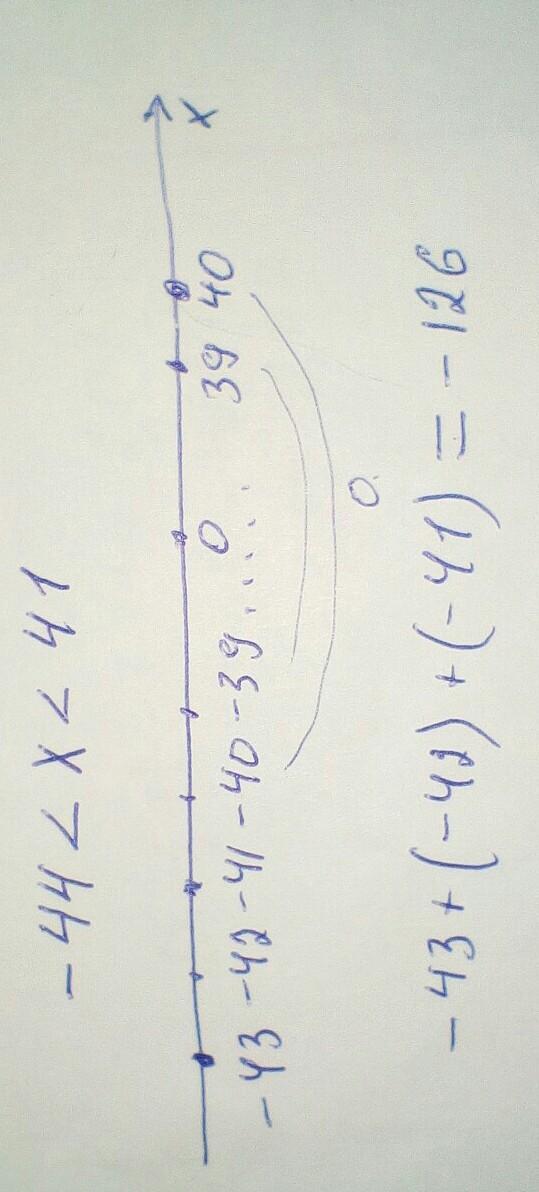 -44 < x < 41
-43 -42 -41 -40 -39 ..... 39 40 x
0
0
-43 + (-42) + (-41) = -126